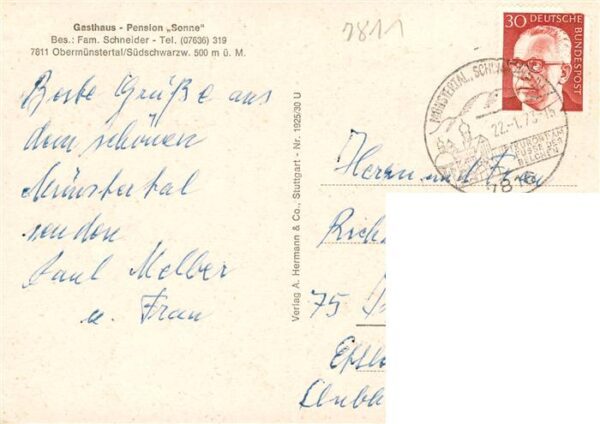 Gasthaus - Pension „Sonne"
Bes.: Fam. Schneider - Tel. (07636) 319
7811 Obermünstertal/Südschwarzw. 500 m ü. M.
7811
Beste Grüße aus
dem schönen
Münstertal
senden
Paul Melber
u. Frau
Verlag A. Hermann & Co., Stuttgart - Nr. 1925/30 U
30 DEUTSCHE BUNDESPOST
MÜNSTERTAL, SCHWARZWALD
22.-1.73-15
FUSSE DES
BELCHEN
7816
Herrn und Frau
Rich
75